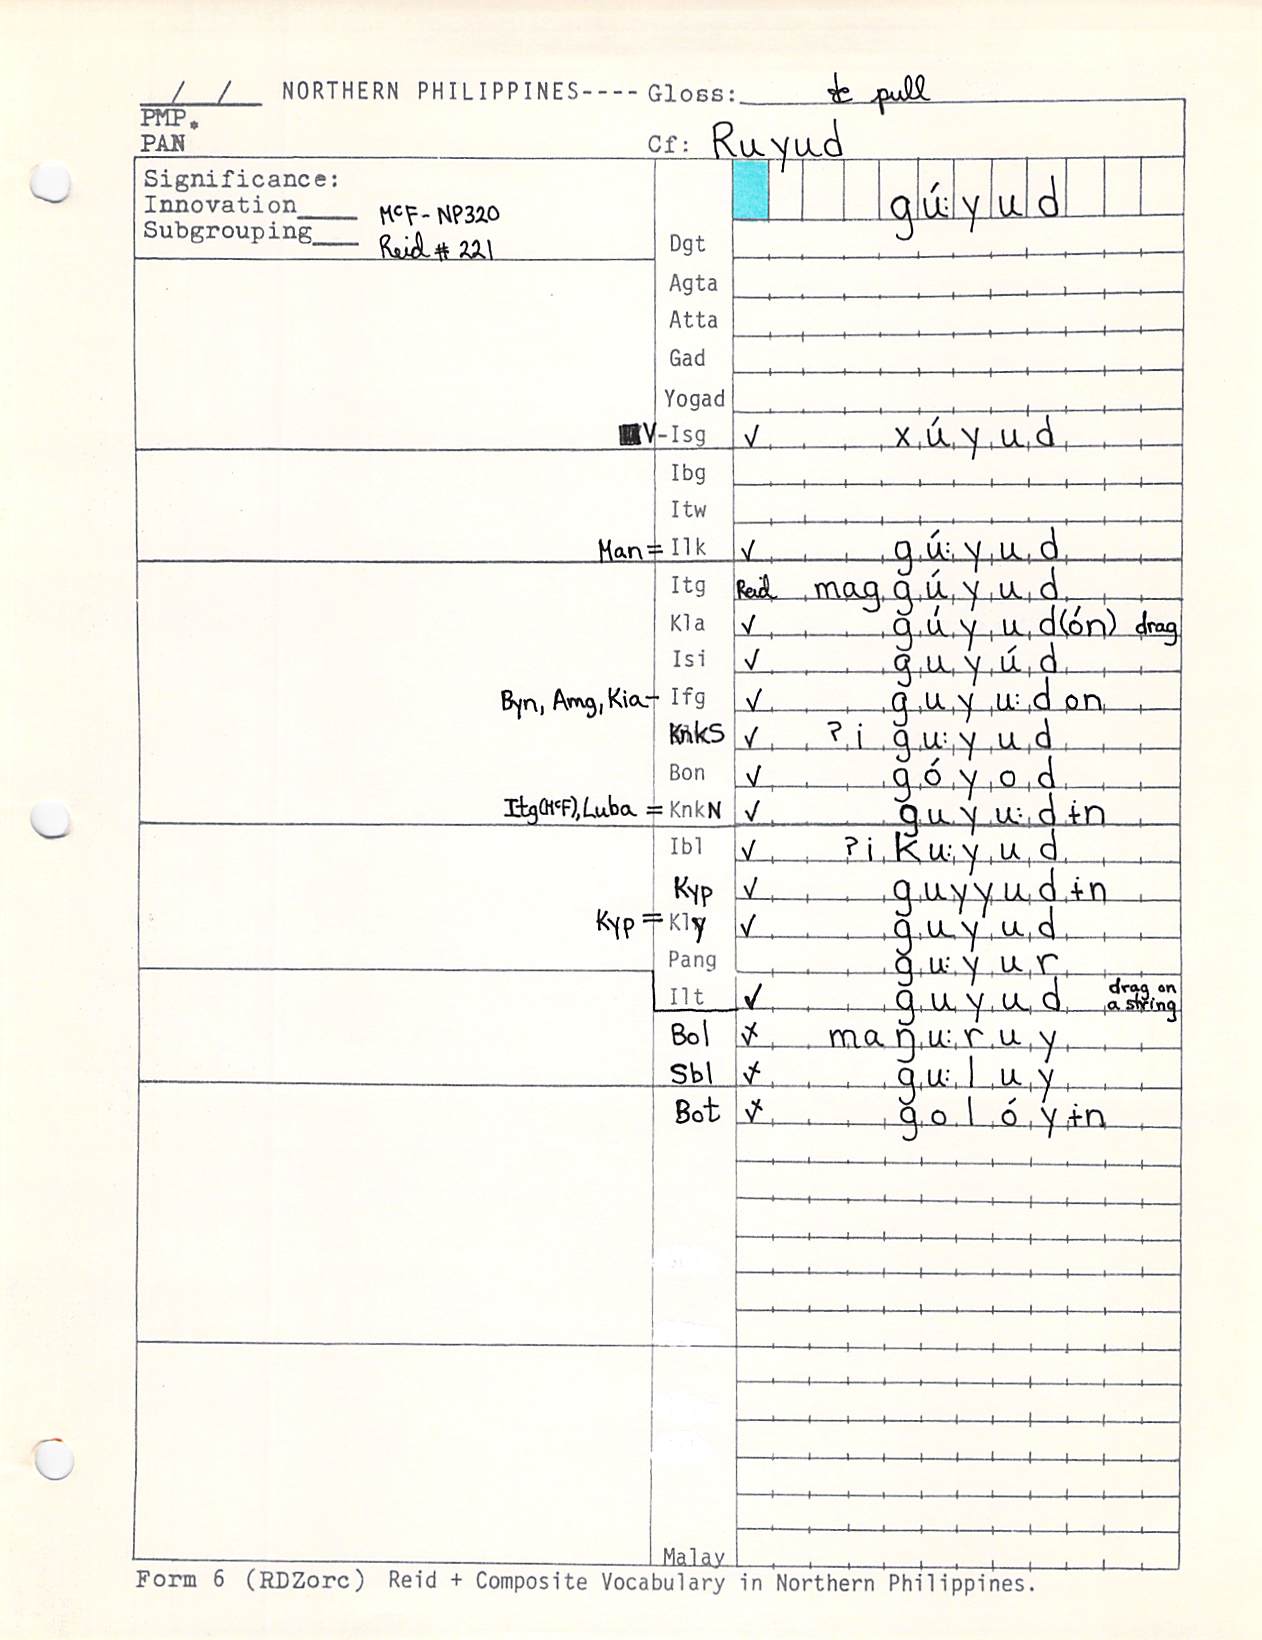 / / NORTHERN PHILIPPINES---- Gloss: to pull
PMP.
PAN Cf: Ruyud
Significance:
Innovation____ McF-NP320
Subgrouping___ Reid # 221
gú:yud
Dgt
Agta
Atta
Gad
Yogad
V-Isg ✓ xúyud
Ibg
Itw
Man = Ilk ✓ gú:yud
Itg Reid maggúyud
Kla ✓ gúyud(ón) drag
Isi ✓ guyúd
Byn, Amg, Kia- Ifg ✓ guyu:don
KnkS ✓ ?igu:yud
Bon ✓ góyod
Itg(McF), Luba = KnkN ✓ guyu:dɨn
Ibl ✓ ?iku:yud
Kyp ✓ guyyudɨn
Kyp = Kly ✓ guyud
Pang gu:yur
Ilt ✓ guyud drag on a string
Bol maŋu:ruy
Sbl gu:luy
Bot golóyɨn
Malay
Form 6 (RDZorc) Reid + Composite Vocabulary in Northern Philippines.